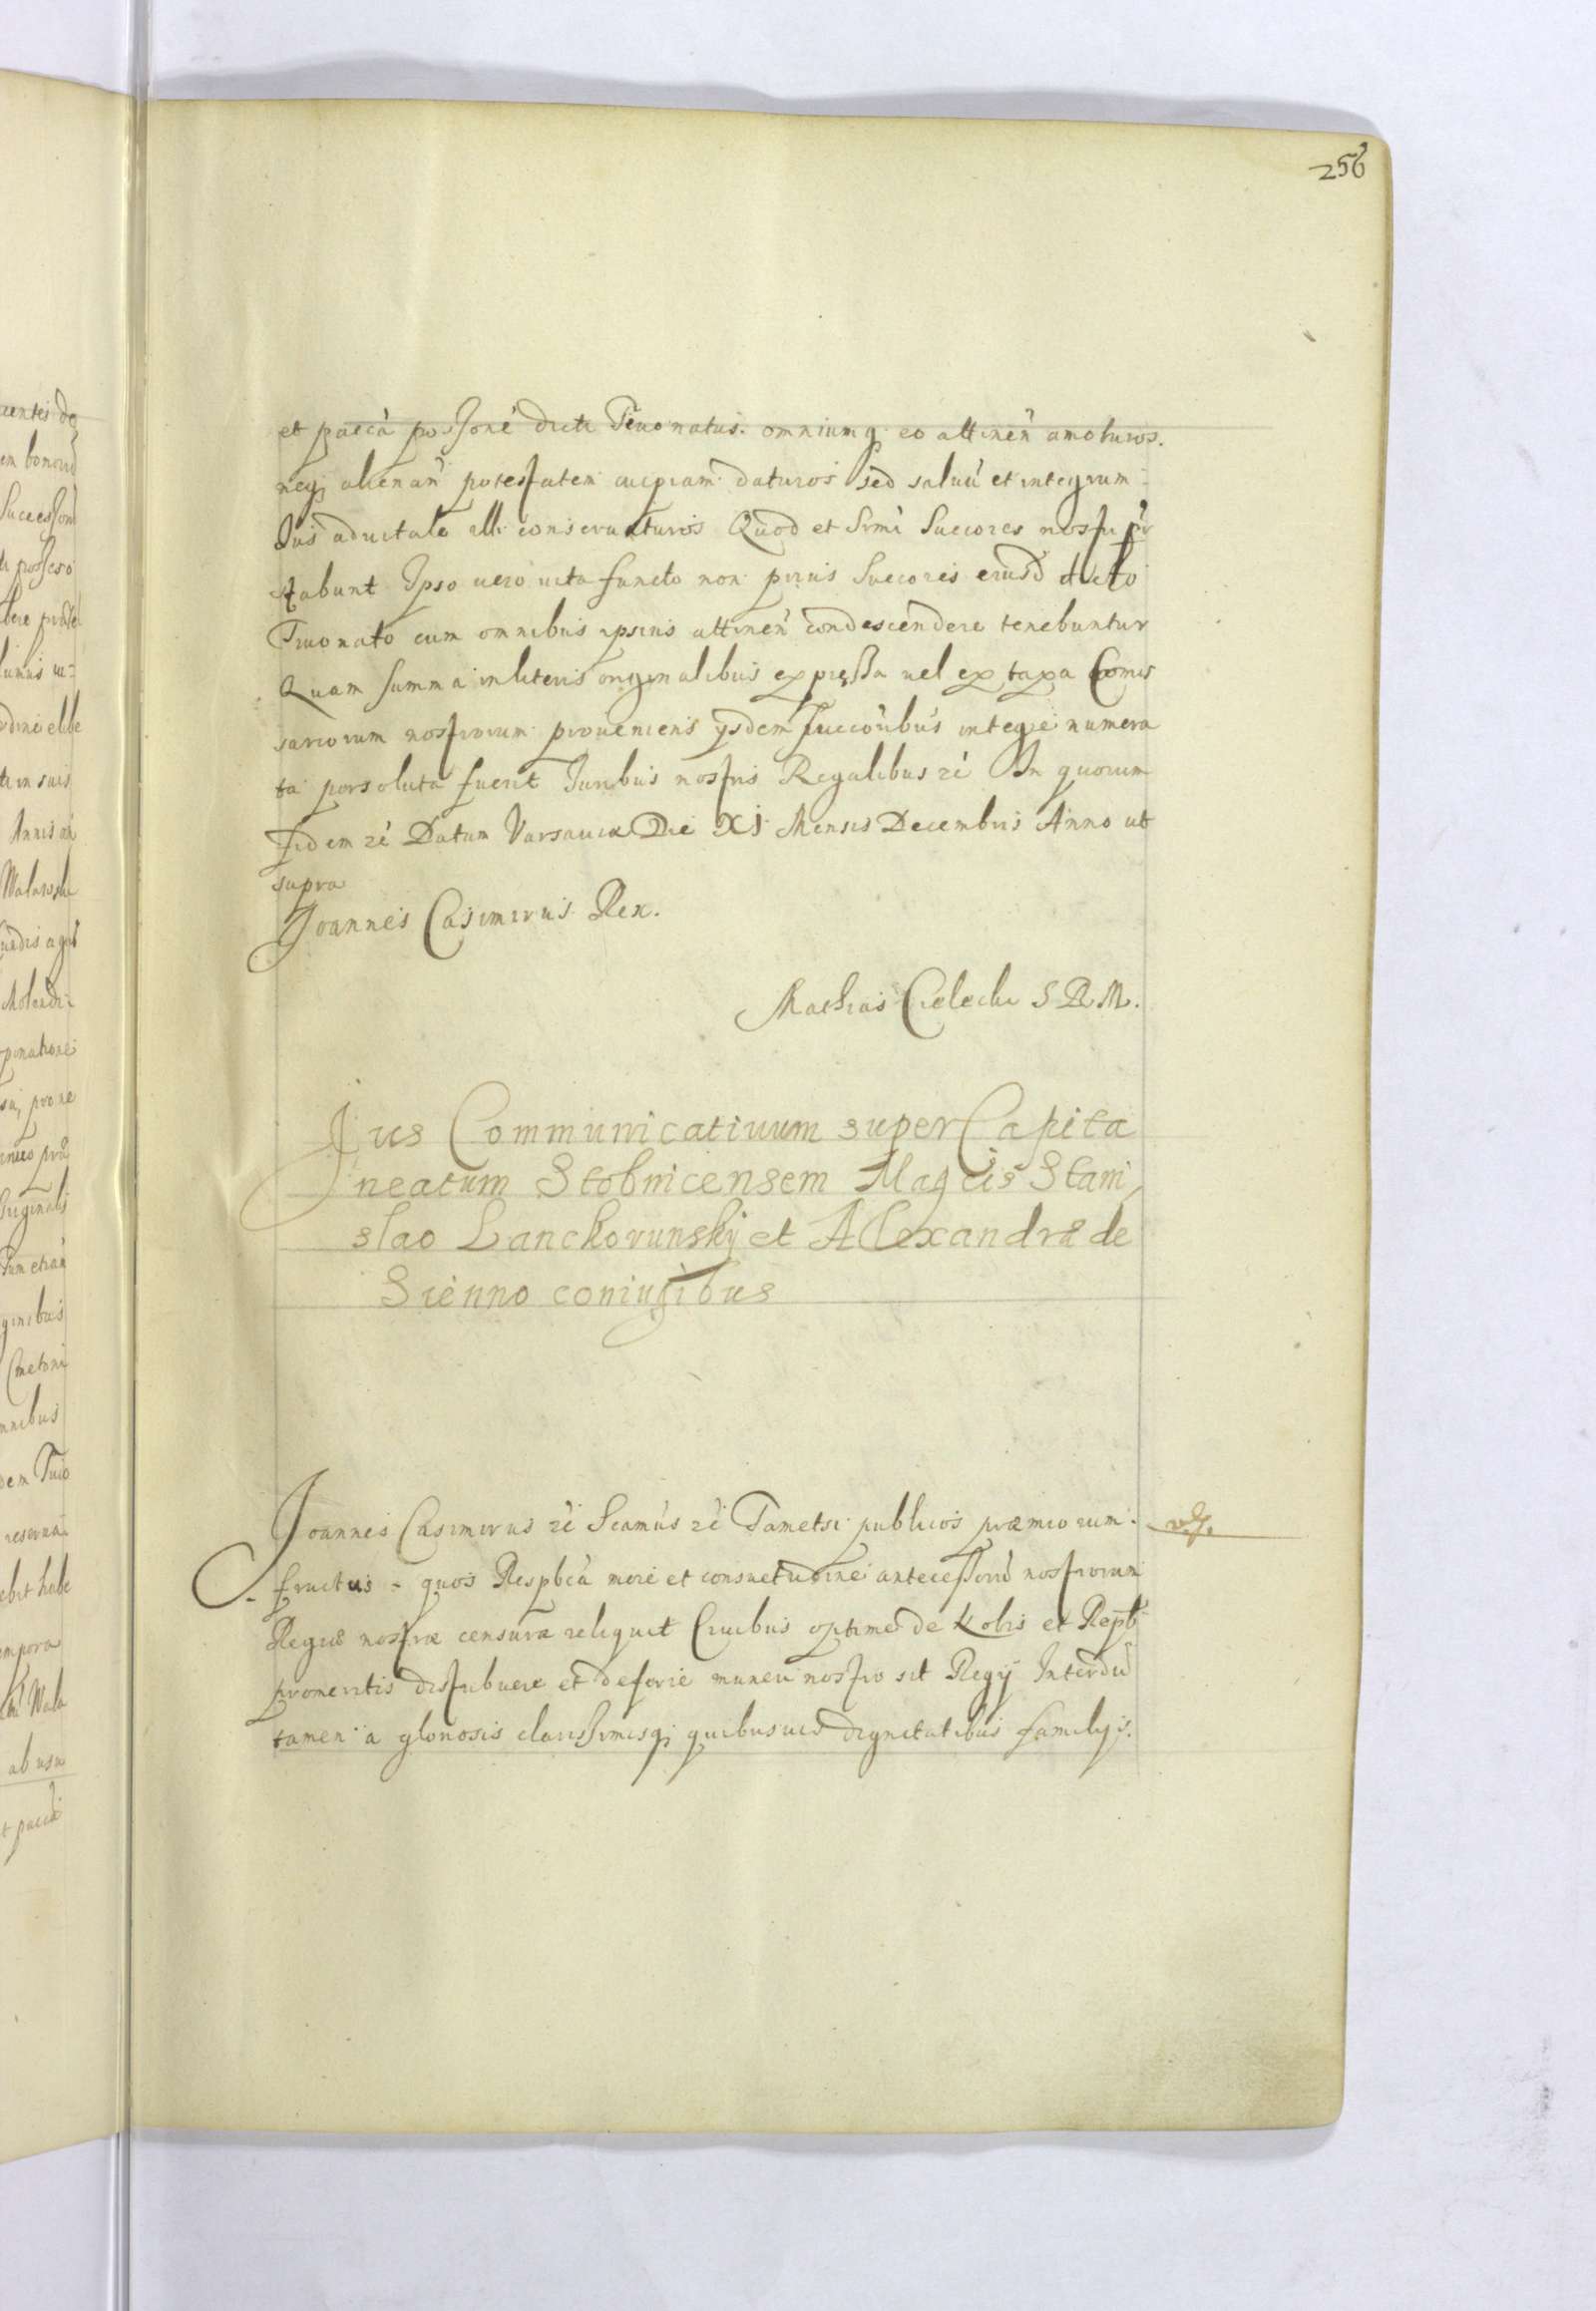 256
et pacca possone dicti Tiuonatus. omniumq. eo attinen amoturos.
neq; alienan potestatem cuipiam daturos sed saluu et integrum
Ius aduitale illi conseruaturos Quod et Srmi Succores nostri pr
stabunt Ipso uero uita functo non prius Succores eiusd dicto
Tiuonato cum omnibus ipsius attinen condescendere tenebuntur
Quam summa in literis originalibus expressa uel ex taxa Comis
sariorum nostrorum proueniens ysdem succoribus integre numera
ta persoluta fuerit Iuribus nostris Regalibus zc In quorum
fidem zc Datum Varsauiæ Die XI Mensis Decembris Anno ut
supra
Joannes Casimirus Rex.
Mathias Cielecki S R M.
Jus Communicatiuum super Capita
neatum Stobnicensem Mag̃cis Stani
slao Lanckorunskij et Alexandræ de
Sienno coniugibus
Joannes Casimirus zc Seamus zc Tametsi publicos præmiorum
fructus quos Respbca more et consuetudine antecessoru nostrorum
Regiæ nostræ censuræ reliquit Ciuibus optime de Nobis et Repb
promeritis distribuere et deferre muneri nostro sit Regij Interdu
tamen a gloriosis clarissimisq; quibusuis dignitatibus familijs.